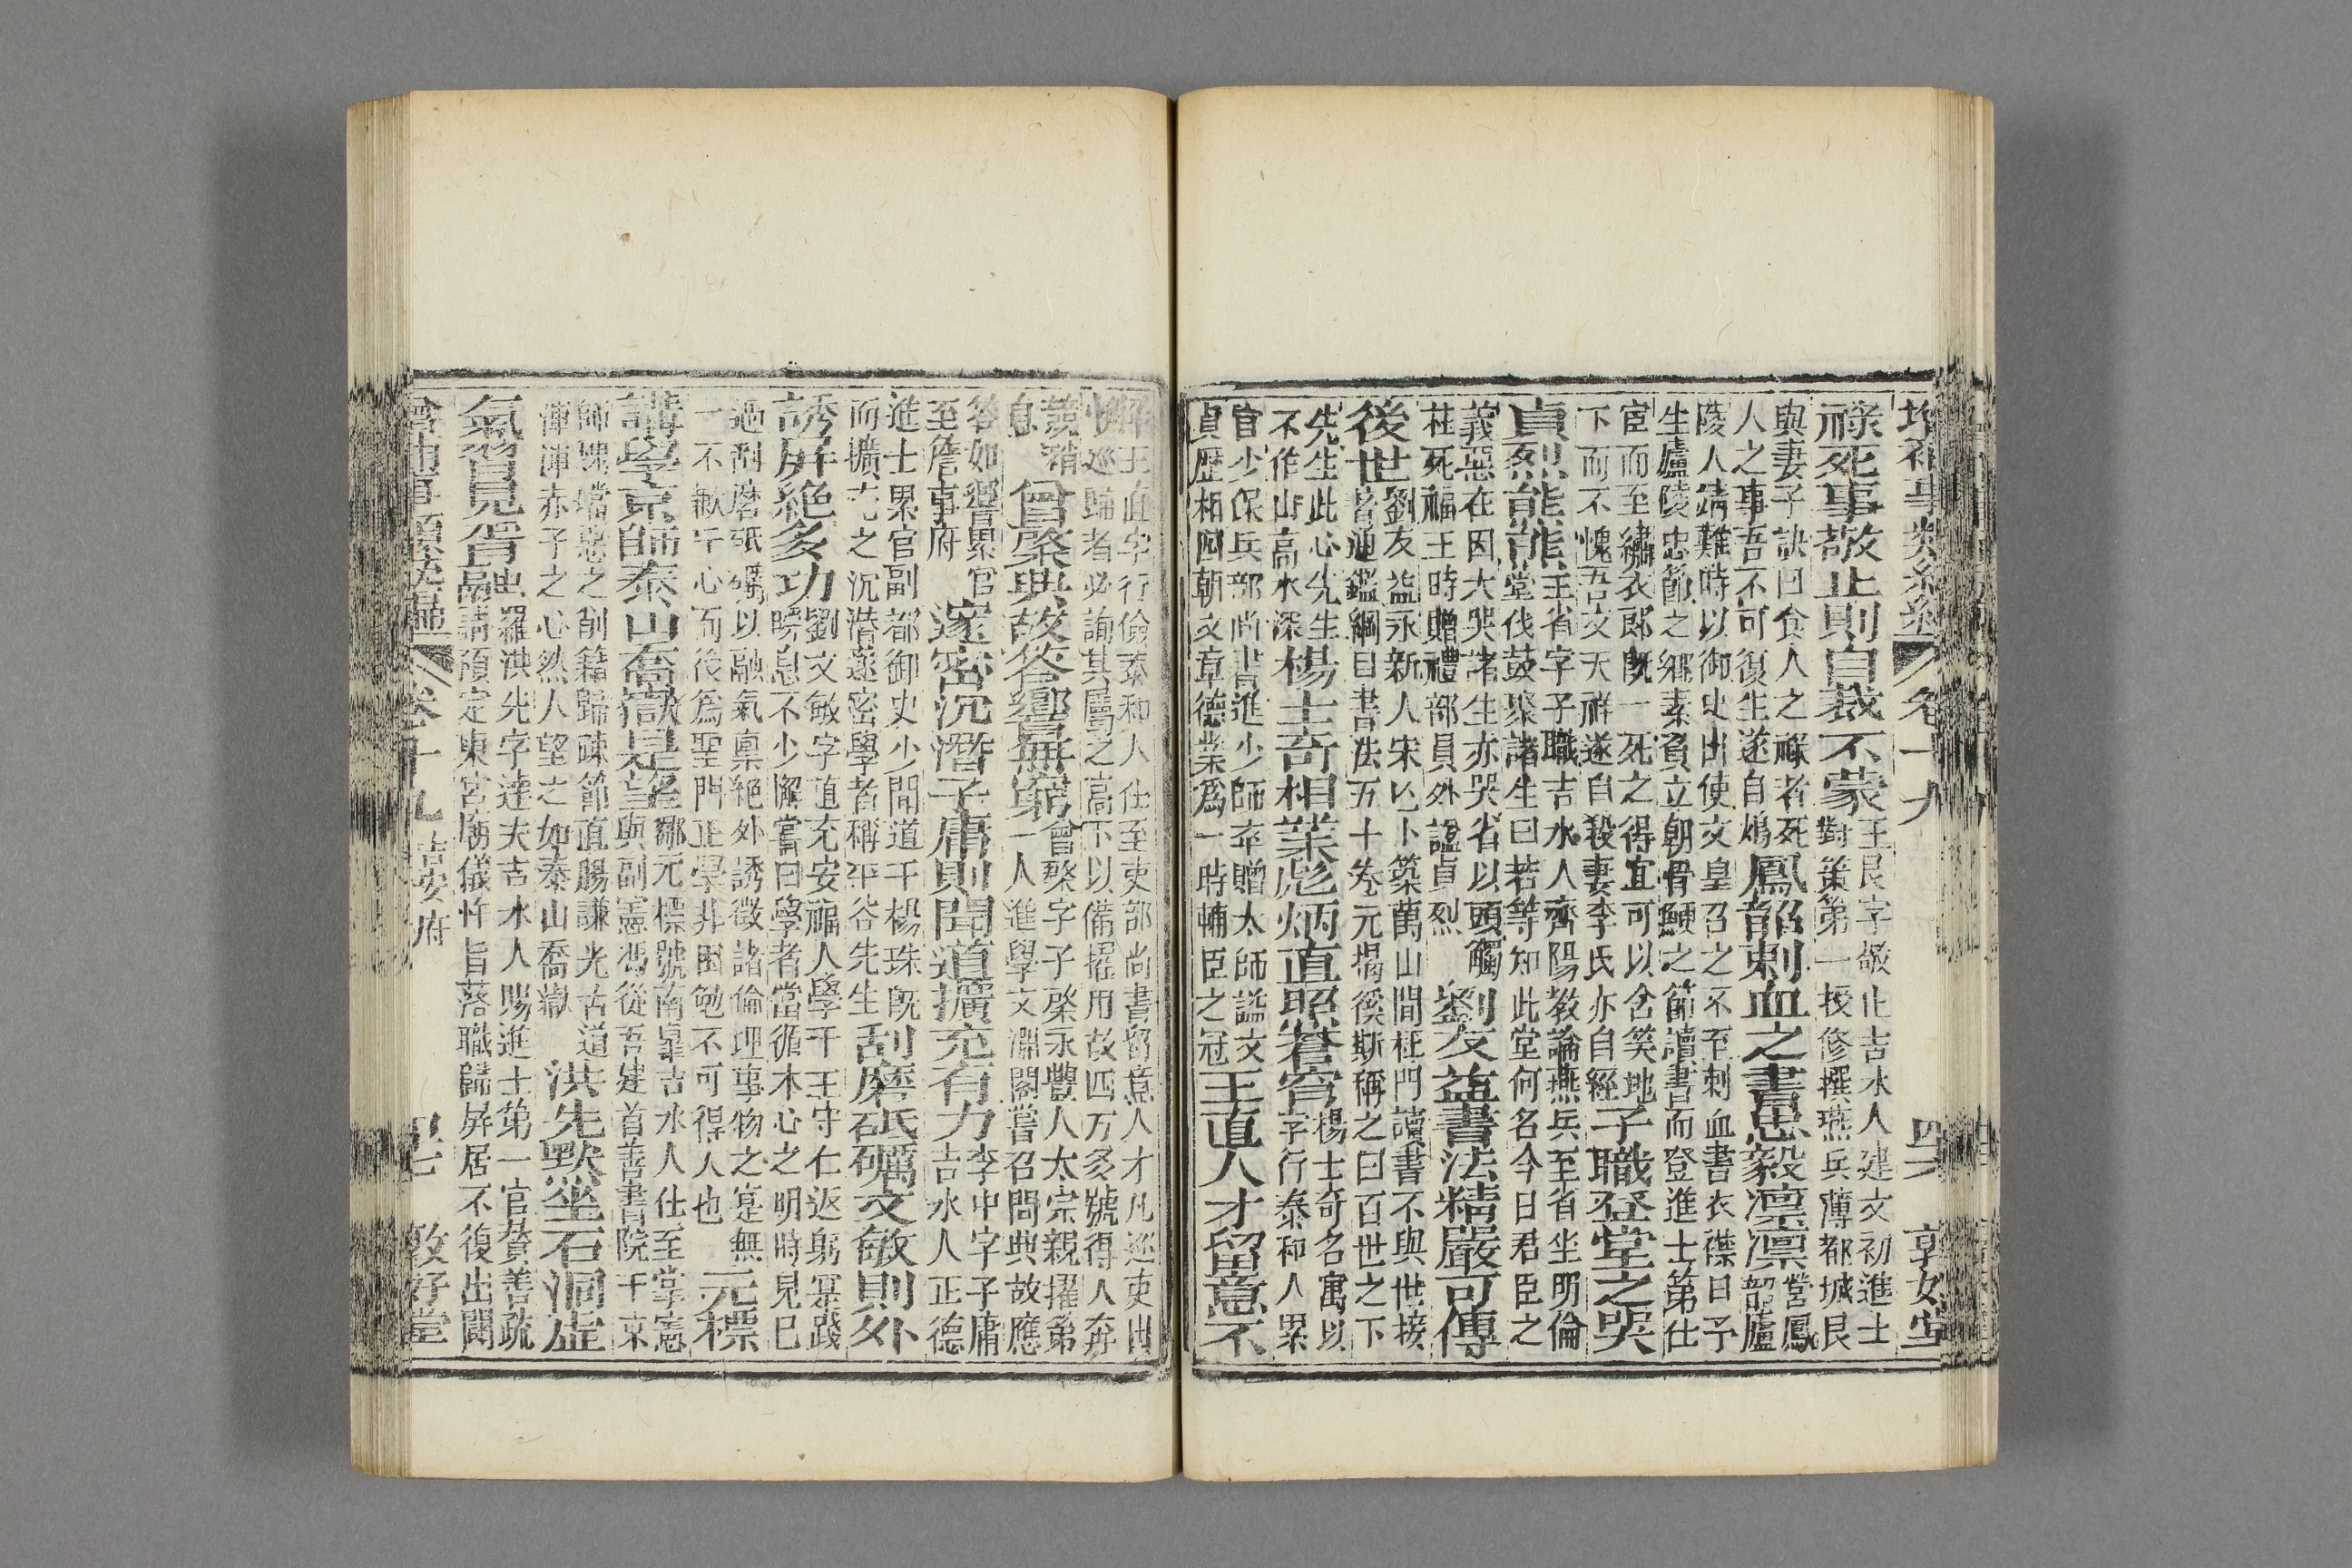 增補事類統編 卷十九 四六 敦好堂
祿死事敬止則自裁不蒙
王艮字敬止吉水人建文初進士
對策第一授修撰燕兵薄都城艮
與妻子訣曰食人之祿者死
人之事吾不可復生遂自鴆
鳳韶刺血之書思毅凛凛
曾鳳
韶廬
陵人靖難時以御史出使文皇召之不至刺血書衣襟曰予
生廬陵忠節之鄉素負立朝骨鯁之節讀書而登進士第仕
宦而至繡衣郎既一死之得宜可以含笑地
下而不愧吾文天祥遂自殺妻李氏亦自經
子職登堂之哭
貞烈能熊
王省字子職吉水人濟陽教諭燕兵至省坐明倫
堂伐鼓聚諸生曰若等知此堂何名今日君臣之
義惡在因大哭諸生亦哭省以頭觸
柱死福王時贈禮部員外諡貞烈
劉友益書法精嚴可傳
後世
劉友益永新人宋亡卜築萬山間杜門讀書不與世接
著通鑑綱目書法五十卷元揭徯斯稱之曰百世之下
先生此心先生
不作山高水深
楊士奇相業彪炳直照蒼穹
楊士奇名寓以
字行泰和人累
官少保兵部尚書進少師卒贈太師諡文
貞歷相四朝文章德業爲一時輔臣之冠
王直人才留意不
王直字行儉泰和人仕至吏部尚書留意人才凡巡吏由
巡歸者必詢其屬之高下以備擢用故四方多號得人奔
競稍
息
曾棨典故答響無窮
曾棨字子棨永豐人太宗親擢第
一人進學文淵閣嘗召問典故應
答如響累官
至詹事府
邃密沉潛子庸則聞道擴充有力
李中字子庸
吉水人正德
進士累官副都御史少聞道于楊珠既
而擴充之沉潛邃密學者稱平谷先生
刮磨砥礪文敏則外
誘屏絶多功
劉文敏字直充安福人學于王守仁返躬實踐
瞬息不少懈嘗曰學者當循本心之明時見已
過刮磨砥礪以融氣稟絶外誘徵諸倫理事物之寔無
一不歉于心而後爲聖門正學非困勉不可得人也
元標
講學京師泰山喬嶽是望
鄒元標號南皐吉水人仕至掌憲
與副憲馮從吾建首善書院于京
師魏璫惡之削籍歸疎節直腸謙光古道
渾渾赤子之心然人望之如泰山喬嶽
洪先黙坐石洞虚
氣習見胥融
羅洪先字達夫吉水人賜進士第一官賛善疏
請預定東宮朝儀忤旨落職歸屏居不復出闢
增補事類統編 卷十九 吉安府 四七 敦好堂